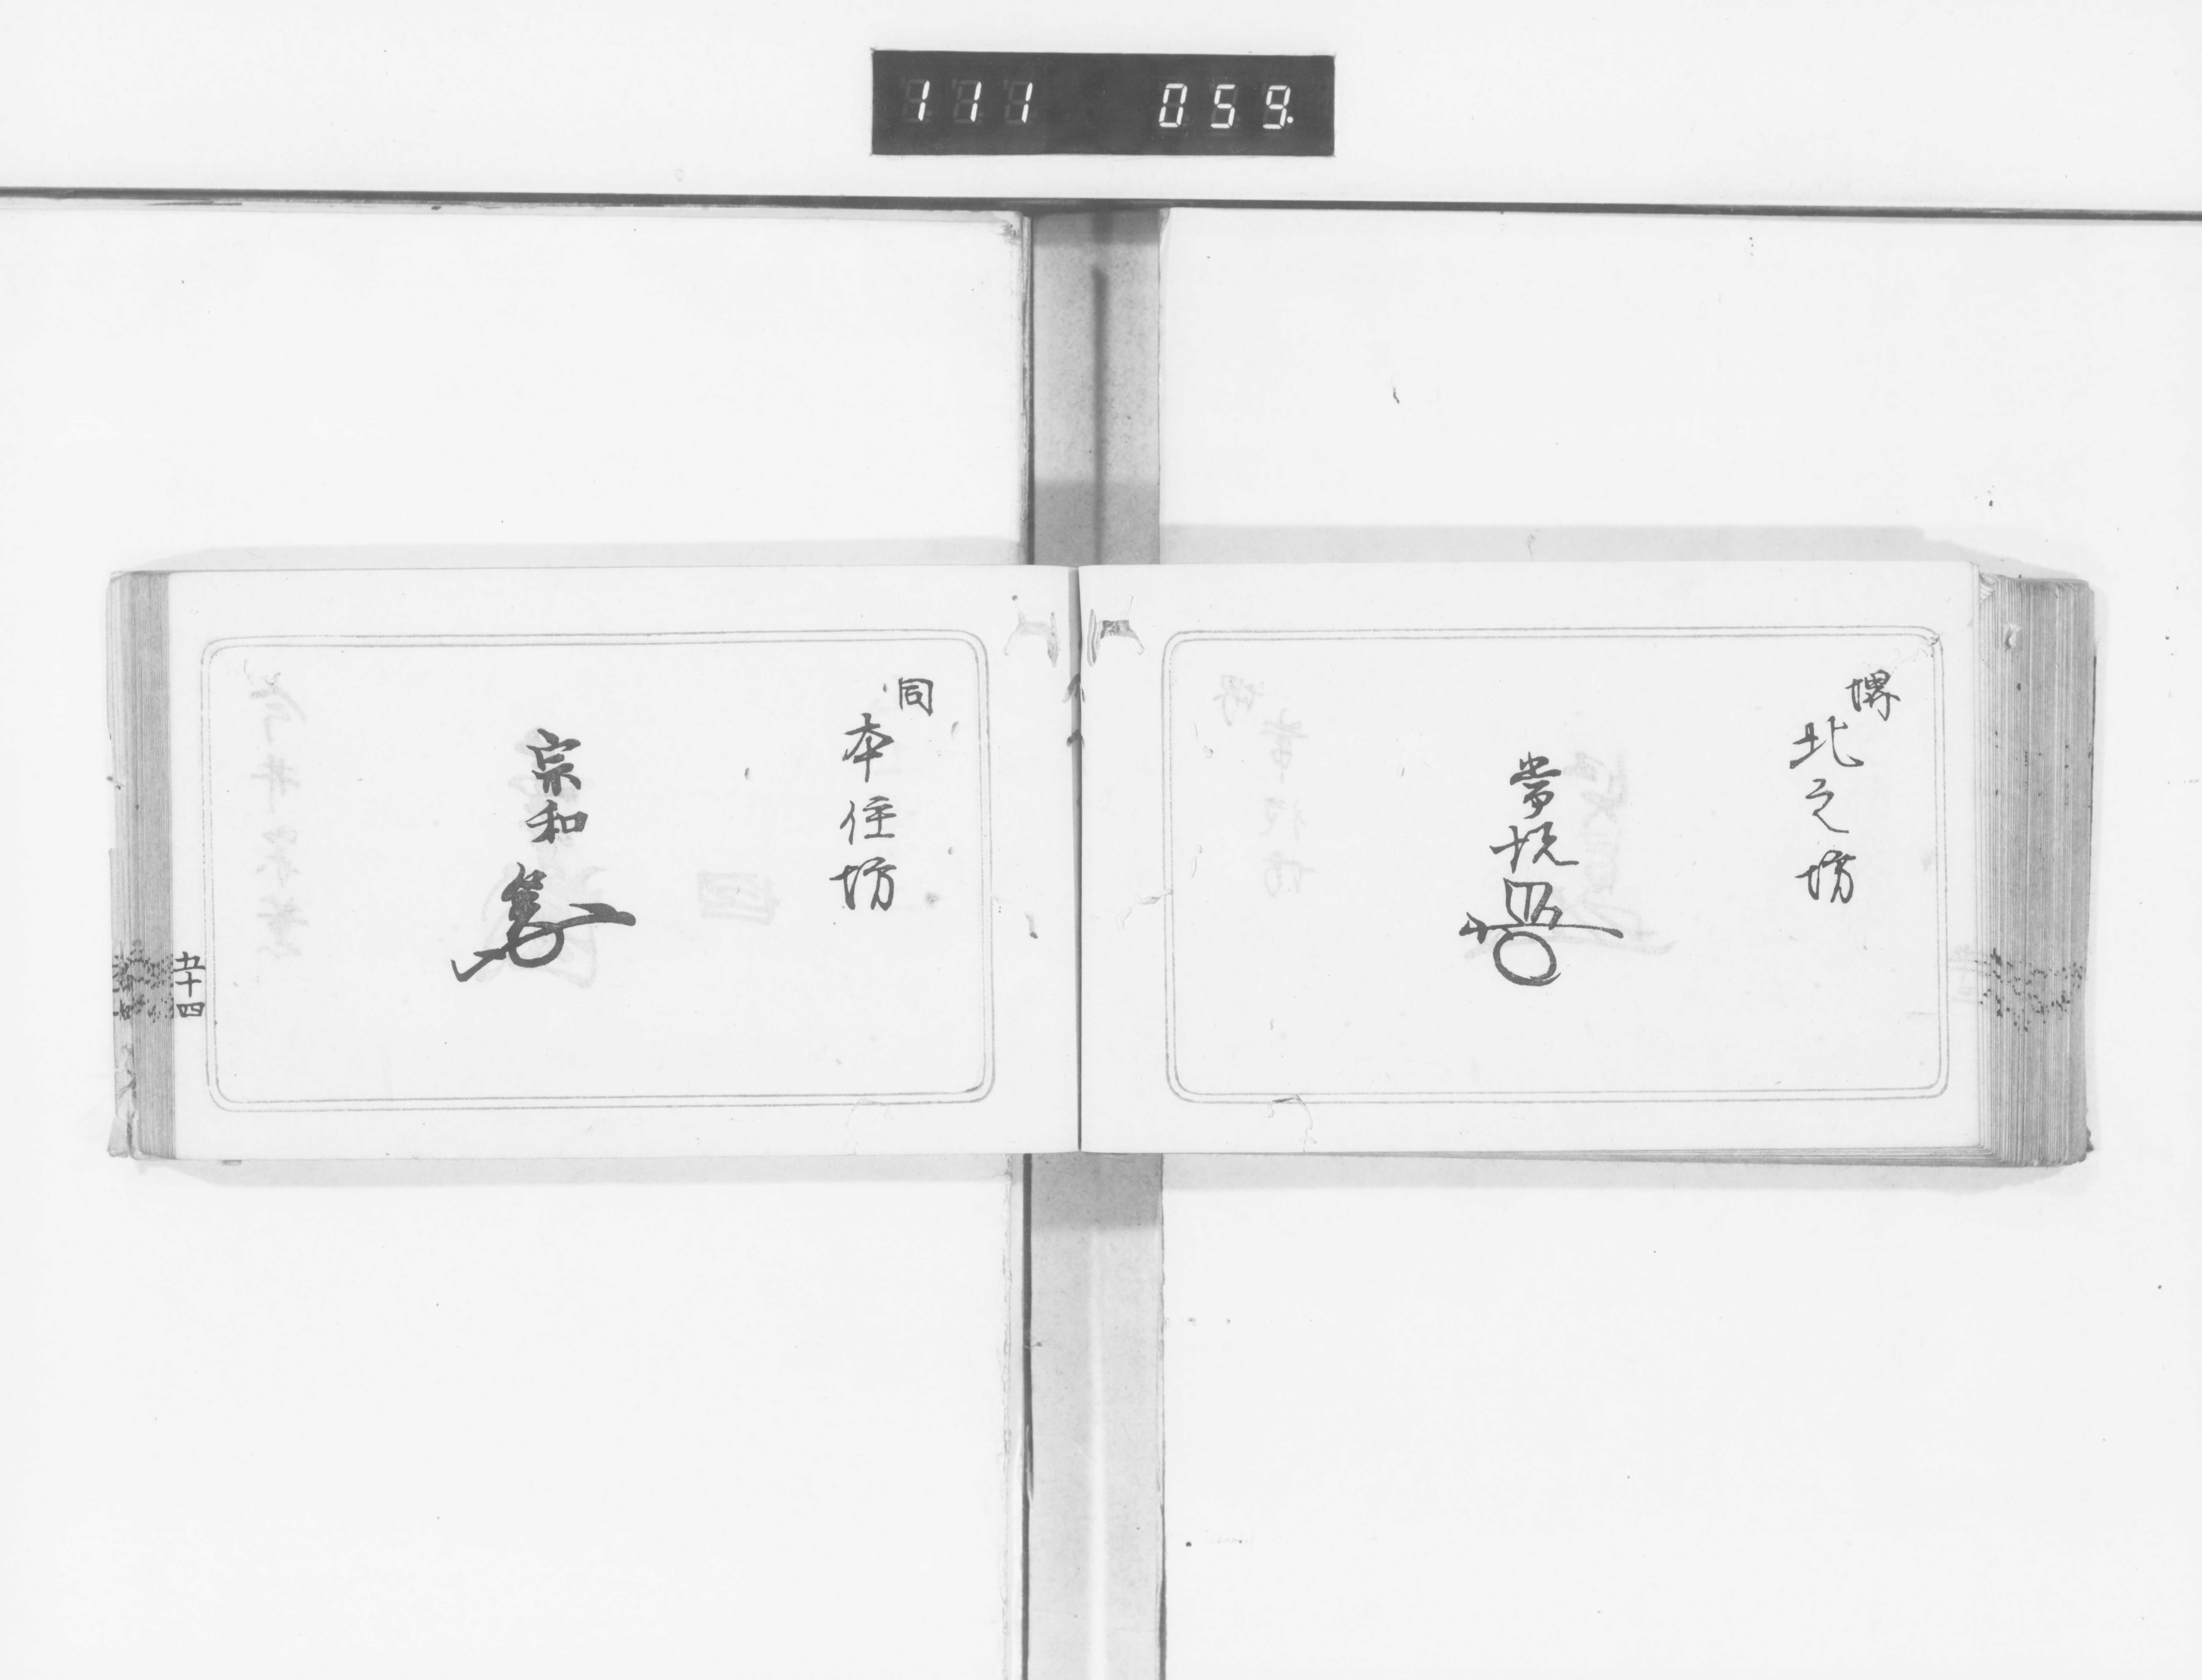 111 059.
堺
北之坊
常悦
同
本住坊
宗和
五十四